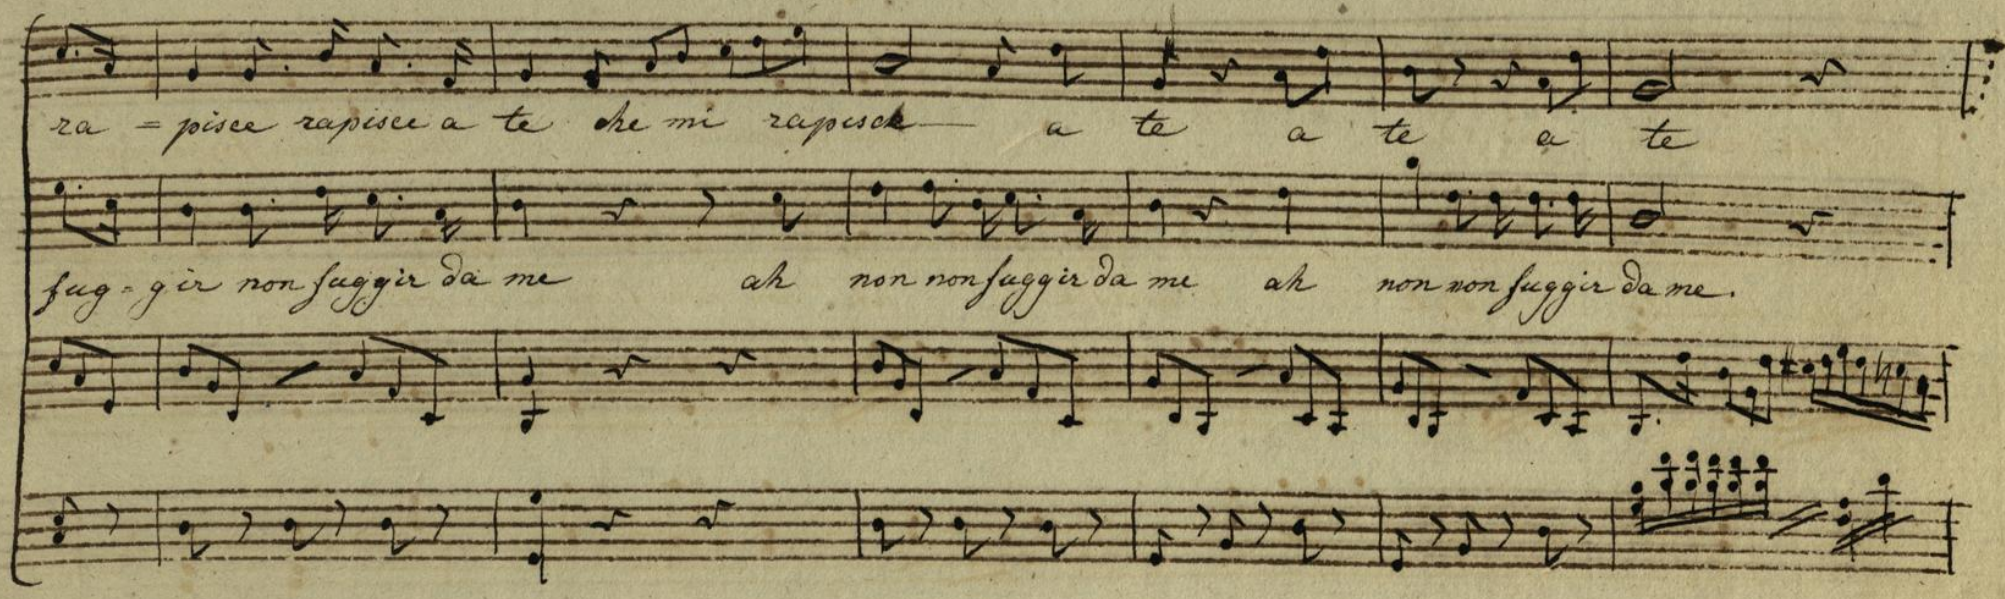 ra = pisce rapisce a te che mi rapisce — a te a te a te
fug = gir non fuggir da me ah non non fuggir da me ah non non fuggir da me.